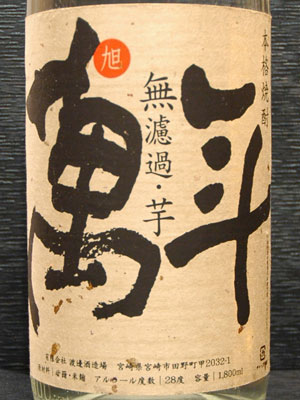 本格焼酎
旭
萬年
無濾過・芋
有限会社 渡邊酒造場 宮崎県宮崎市田野町甲2032-1
原材料|甘藷・米麹 アルコール度数|28度 容量|1,800ml